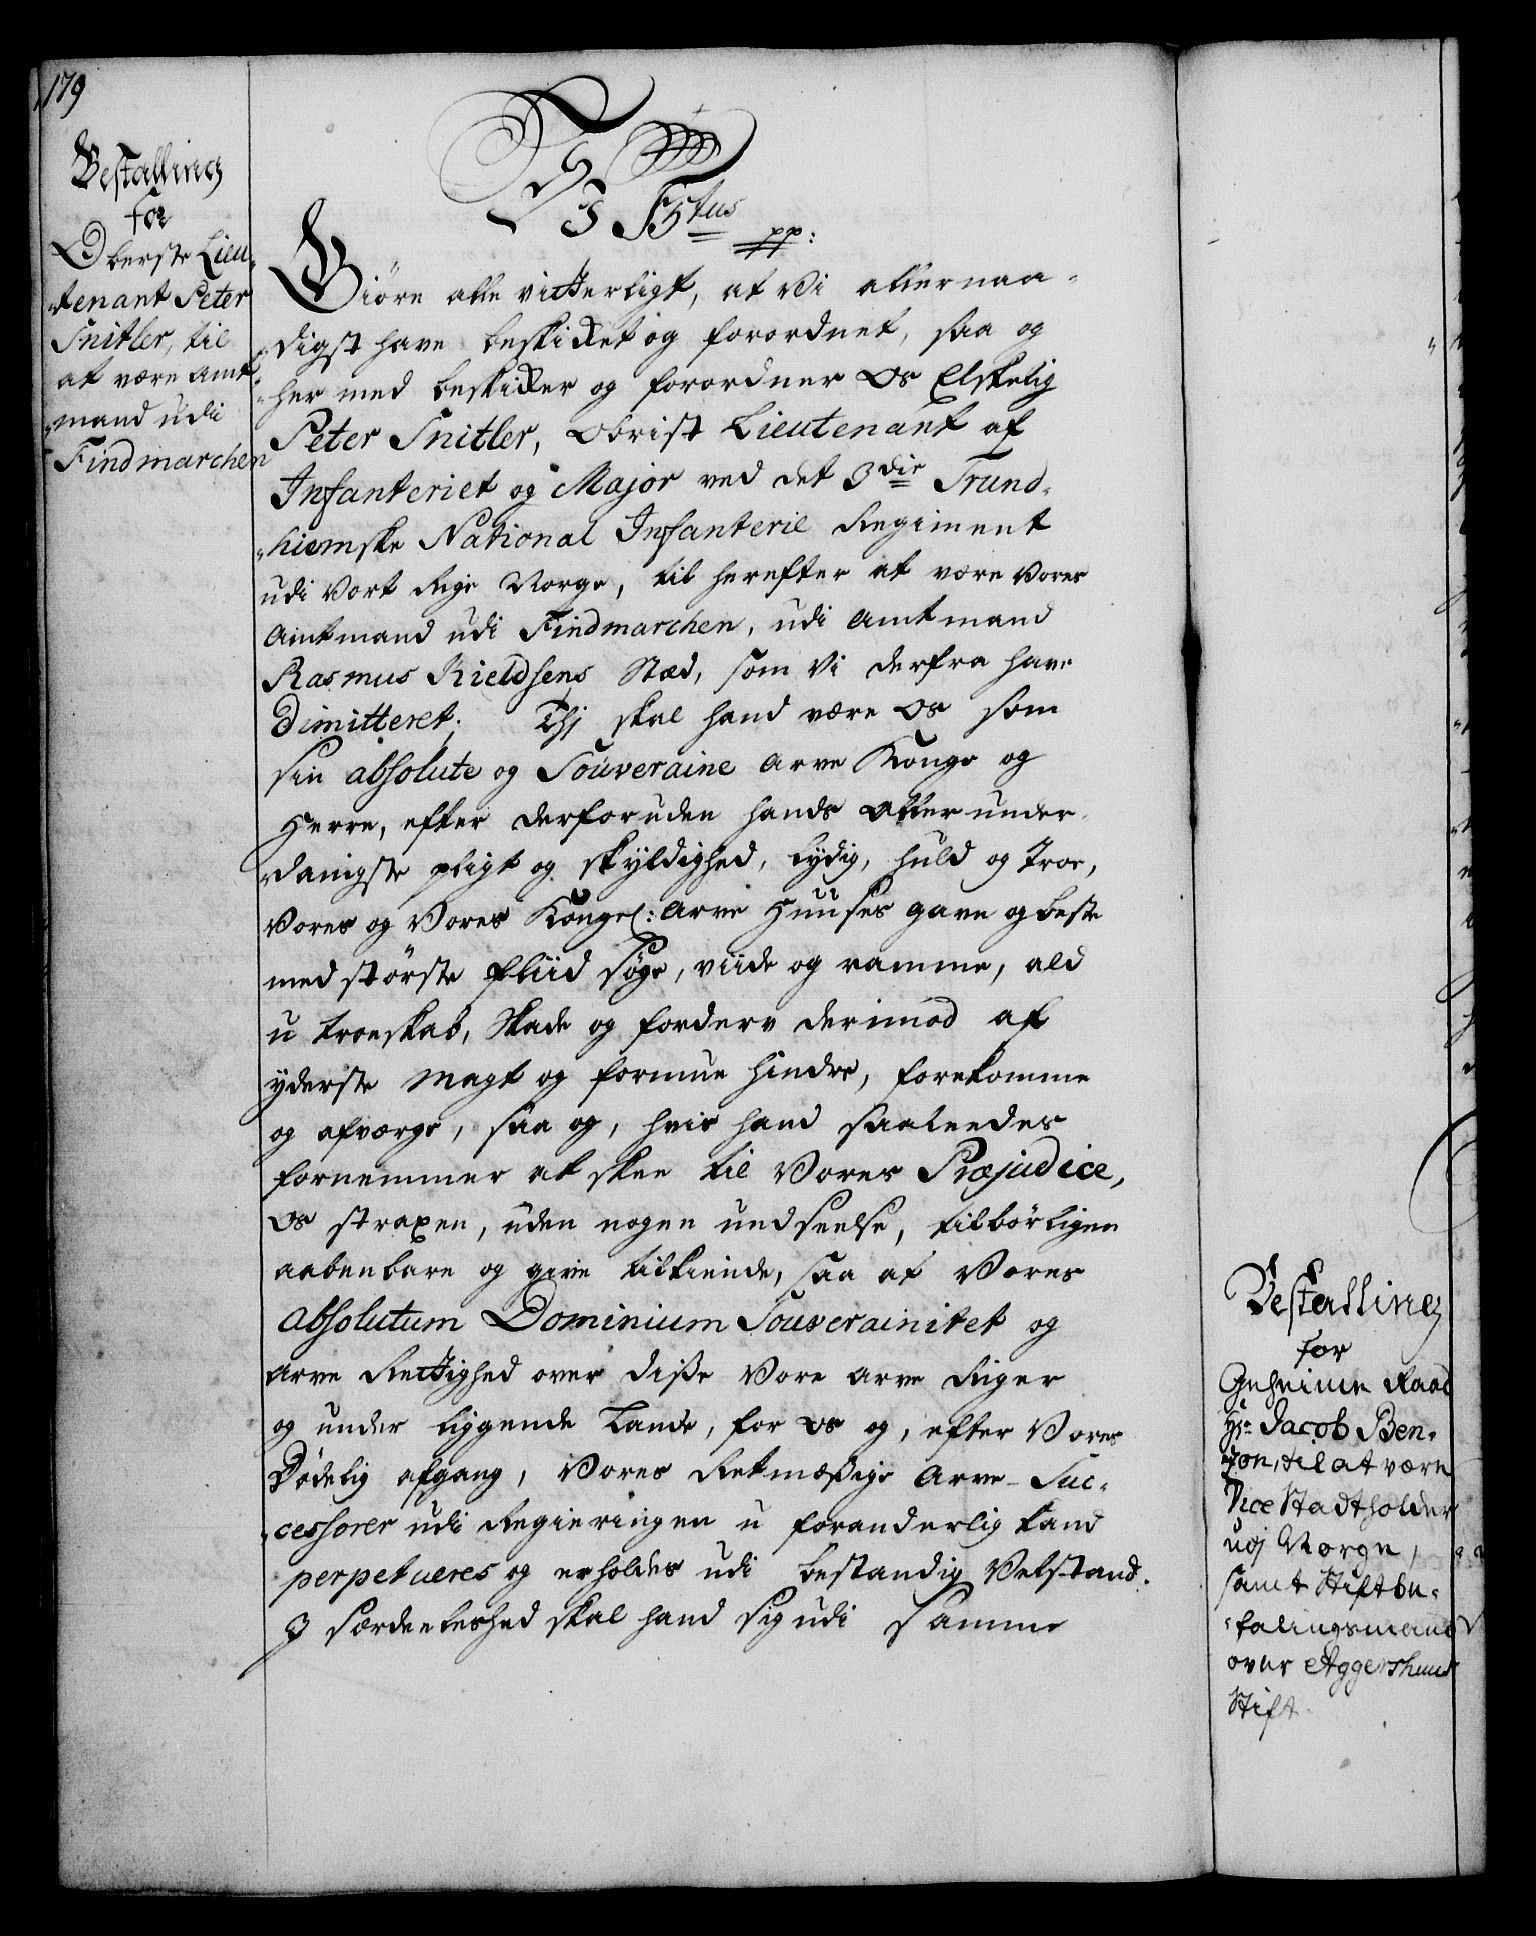 179
Bestalling
for
Oberste Lieu-
tenant Peter
Snitler, til
at være Amt-
mand udi
Findmarchen
F5tus pp:
Giöre alle vitterligt, at Vi allernaa-
digst have beskikket og forordnet, saa og
her med beskikker og forordner Os Elskelig
Peter Snitler, Obrist Lieutenant af
Infanteriet og Major ved det 3die Trund-
hiemske National Infanterie Regiment
udi Vort Rige Norge, til herefter at være Vores
Amtmand udi Findmarchen, udi Amtmand
Rasmus Kieldsens Stæd, som Vi derfra have
Dimitteret; Thj skal hand være Os som
sin absolute og Souveraine Arve Konge og
Herre, efter derforuden hands Aller under-
danigste pligt og skyldighed, lydig, huld og Troe,
Vores og Vores Kongel: Arve Huuses gavn og beste
med störste fliid söge, viide og ramme, ald
u troeskab, Skade og forderv derimod af
yderste Magt og formue hindre, forekomme
og afværge, saa og, hvis hand saaleedes
fornemmer at skee til Vores Præjudice,
Os straxen, uden nogen undseelse, tilbörligen
aabenbare og give tilkiende, saa at Vores
absolutum Dominium Souverainitet og
Arve Rettighed over diße Vore Arve Riger
og under liggende Lande, for Os og, efter Vores
Dödelig afgang, Vores Retmæßige Arve-Suc-
cessorer udi Regieringen u foranderlig kand
perpetueres og erholdes udi bestandig Velstand.
J særdeeleshed skal hand sig udi samme
Bestalling
for
Geheime Raad
Hr Jacob Ben-
zon, til at være
Vice Stadtholder
udj Norge,
samt Stiftbe-
falingsmand
over Aggershuus
Stift.